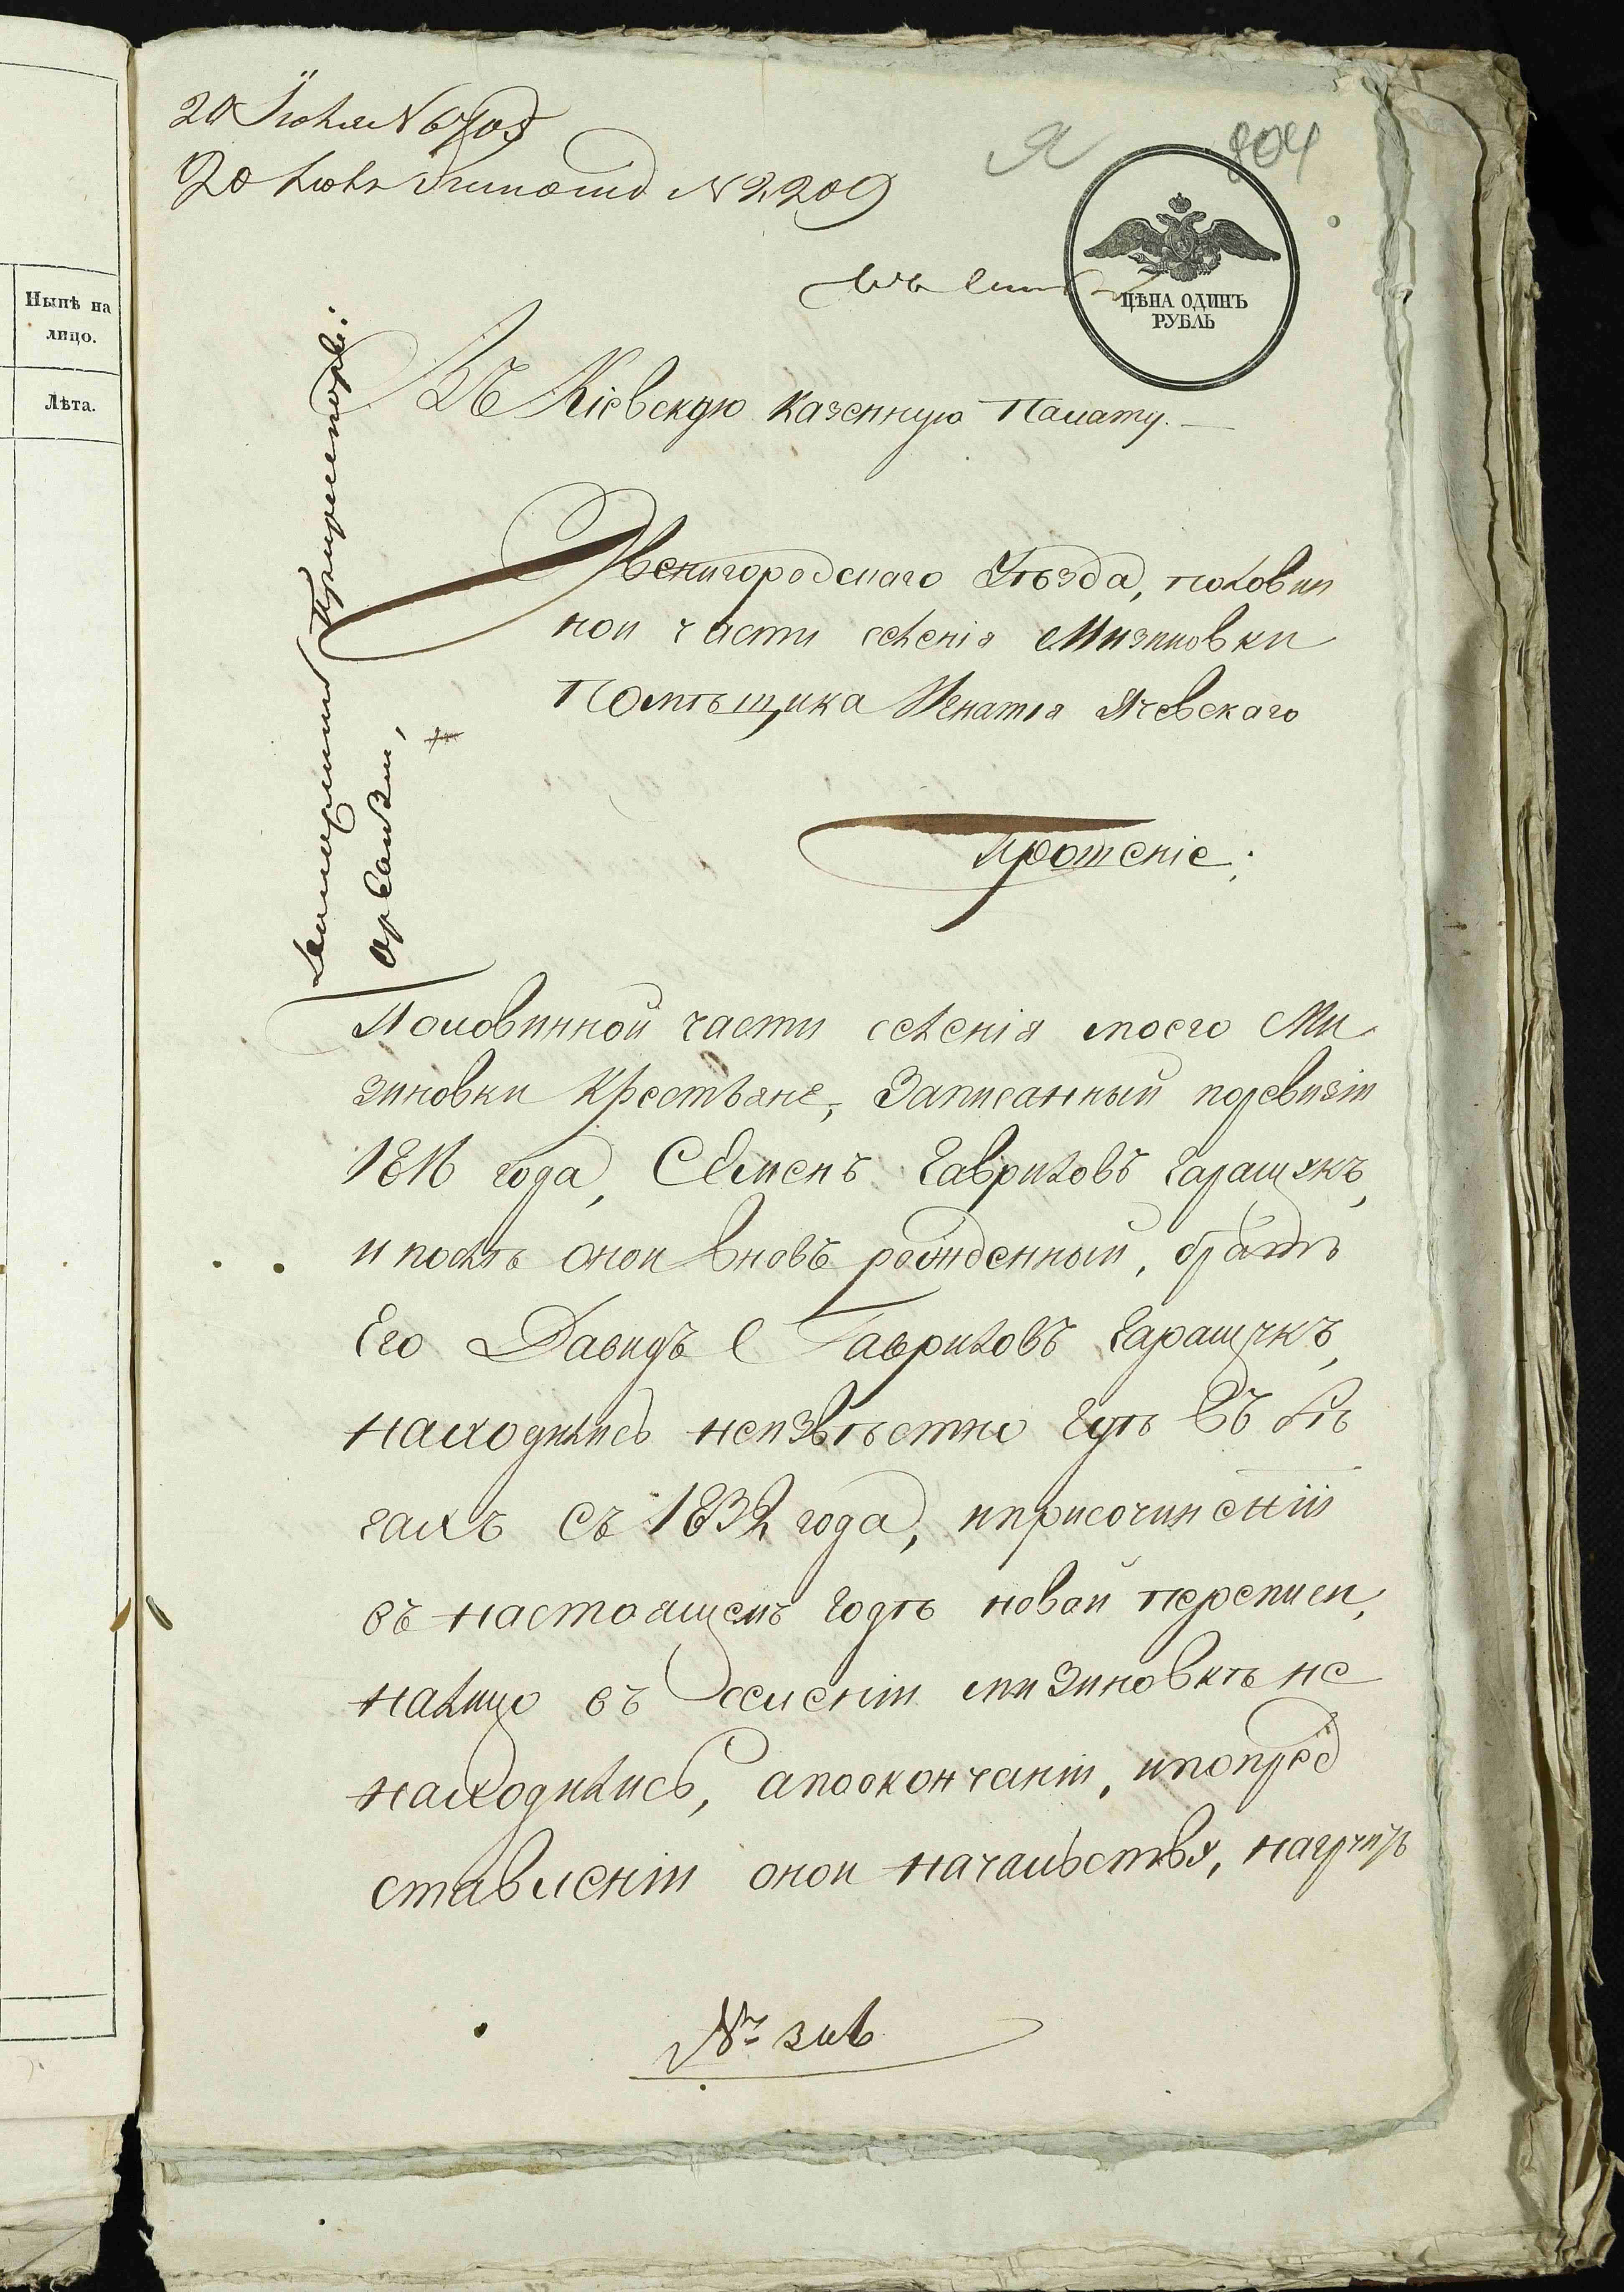 Нынѣ на
лицо.
Лѣта.
20 Іюня N 6703
20 Июня N 2209
804
ЦѢНА ОДИНЪ
РУБЛЬ
Въ Кіевскую Казенную Палату.
Звенигородскаго Уѣзда, половин
ной части селенія Мизиновки
Помѣщика Игнатія Ячевскаго
Прошеніе;
Половинной части селенія моего Ми
зиновки Крестьяне, Записанный поревизіи
1816 года, Семенъ Гавриловъ Гаращукъ,
и послѣ оной вновь рожденный, братъ
Его Давидъ Гавриловъ Гаращукъ,
находились неизвѣстно гдѣ въ бѣ
гахъ съ 1832 года, и присочиненіи
въ настоящемъ годѣ новой переписи,
налицо въ селеніи мизиновкѣ не
находились, апоокончаніи, ипопред
ставленіи оной начальству,